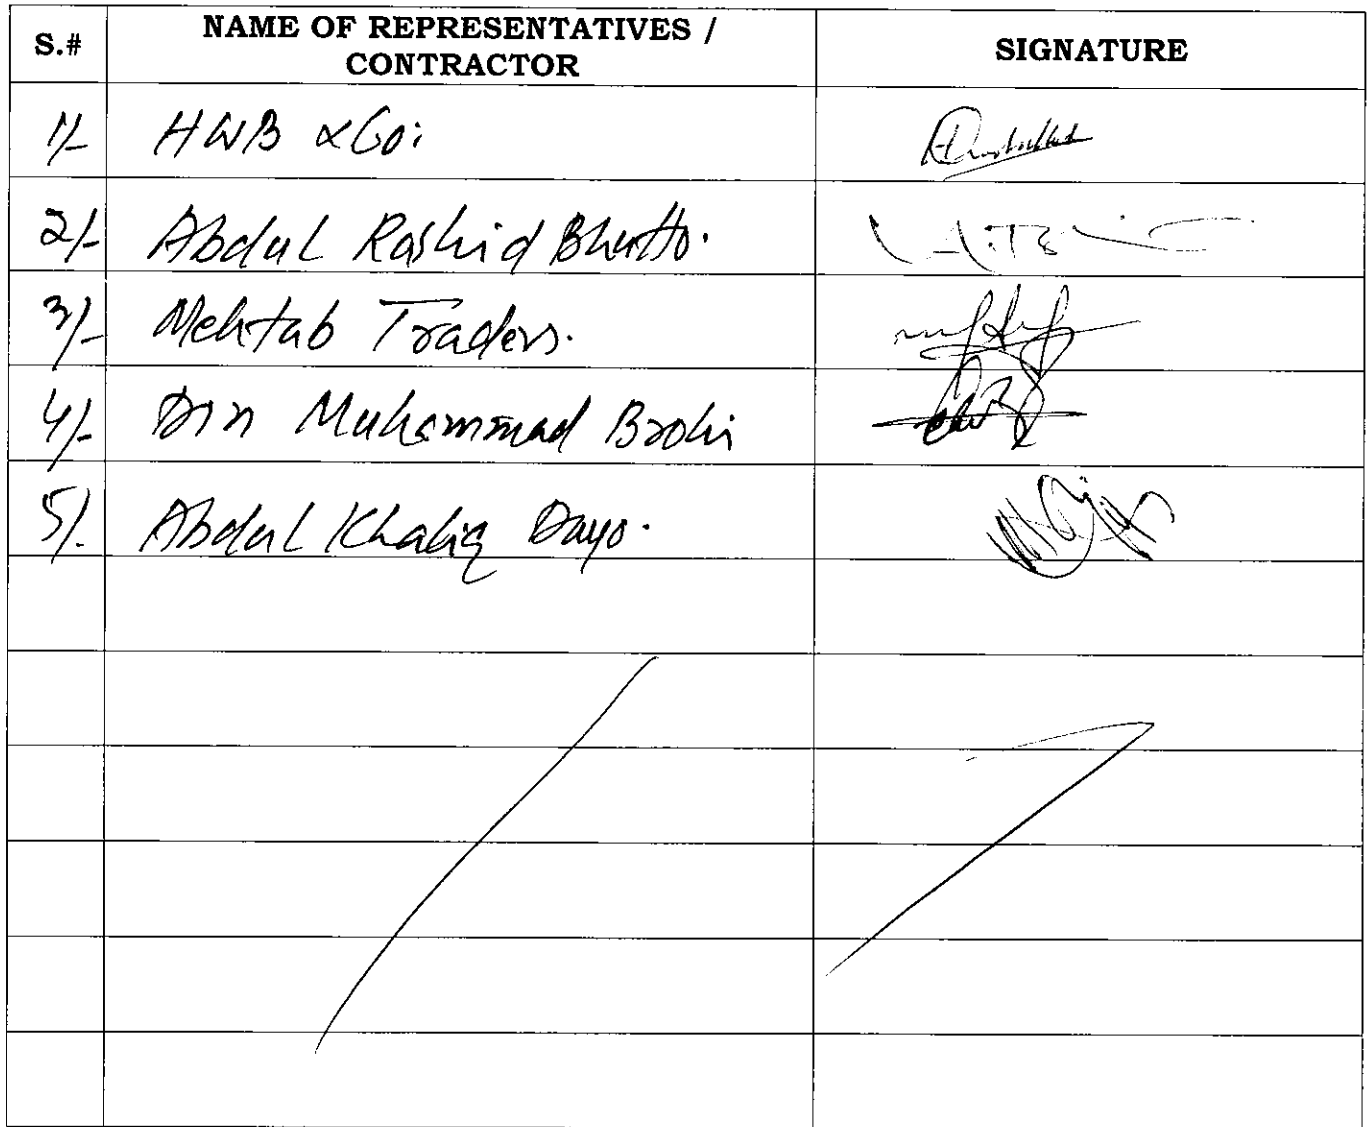 S.# NAME OF REPRESENTATIVES / CONTRACTOR SIGNATURE
1/- HWB & Co:
2/- Abdul Rashid Bhutto.
3/- Mehtab Traders.
4/- Din Muhammad Brohi
5/- Abdul Khaliq Dayo.